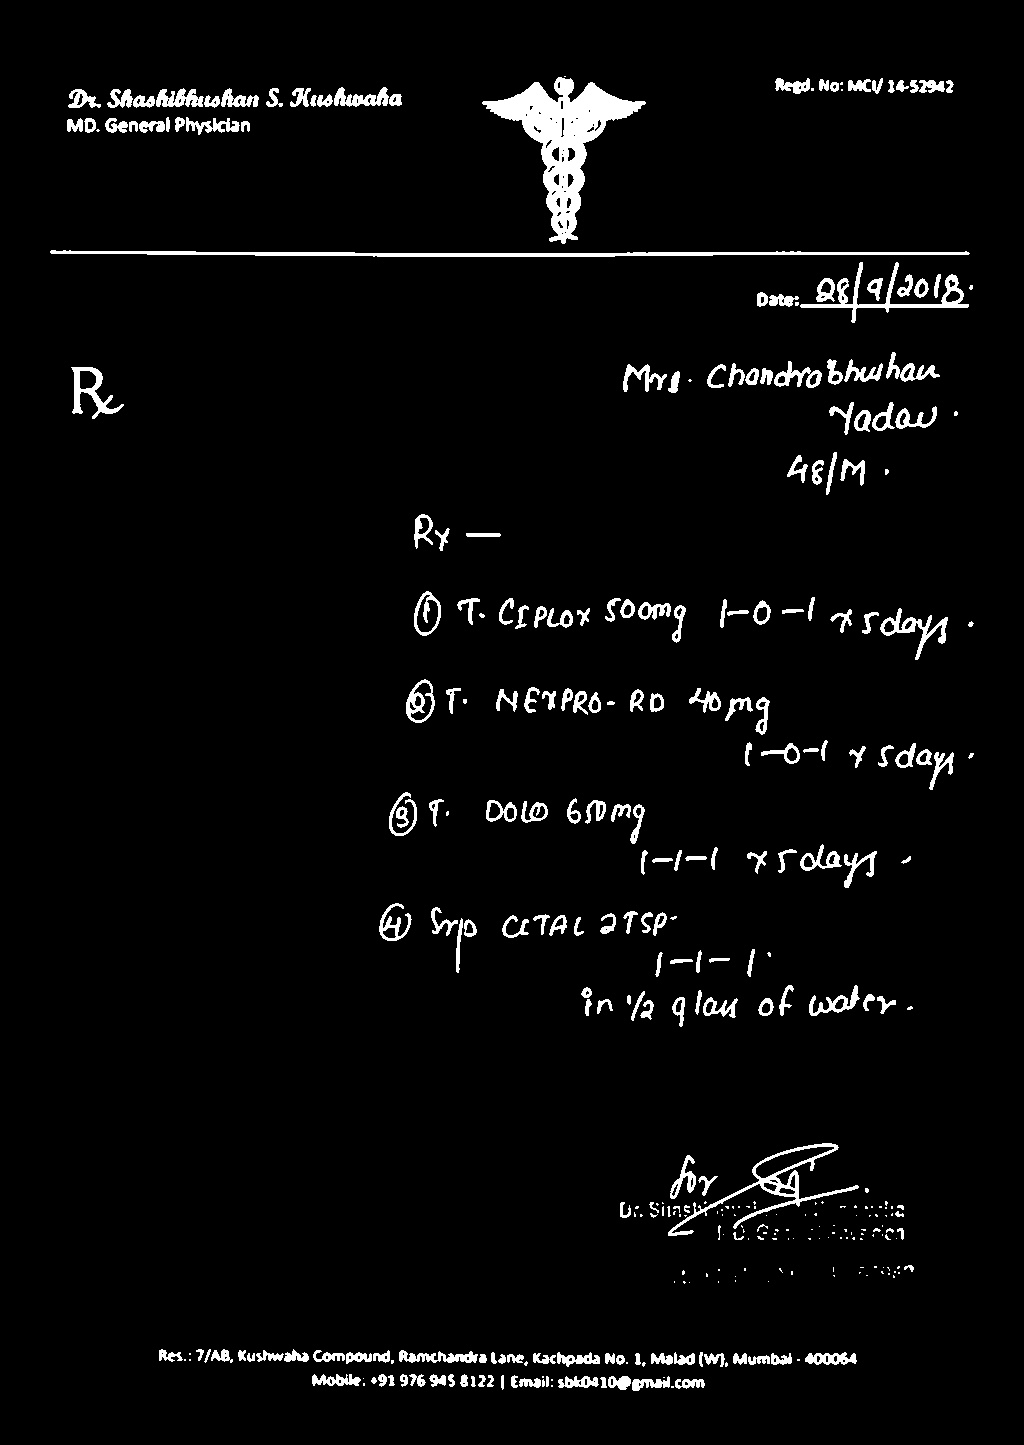 Dr. Shashibhushan S. Kushwaha
MD. General Physician
Regd. No: MCI/ 14-52942
Date: 28/9/2018.
Rx
Mrs. Chandrabhushan
Yadav.
48/M.
Rx —
① T. CIPLOX 500mg 1-0-1 x 5 days.
② T. NEXPRO-RD 40 mg
1-0-1 x 5 days.
③ T. DOLO 650 mg
1-1-1 x 5 days.
④ Syp CITAL 2TSP
1-1-1.
in 1/2 glass of water.
for
Dr.
Res.: 7/AB, Kushwaha Compound, Ramchandra Lane, Kachpada No. 1, Malad (W), Mumbai - 400064
Mobile: +91 976 945 8122 | Email: sbk0410@gmail.com